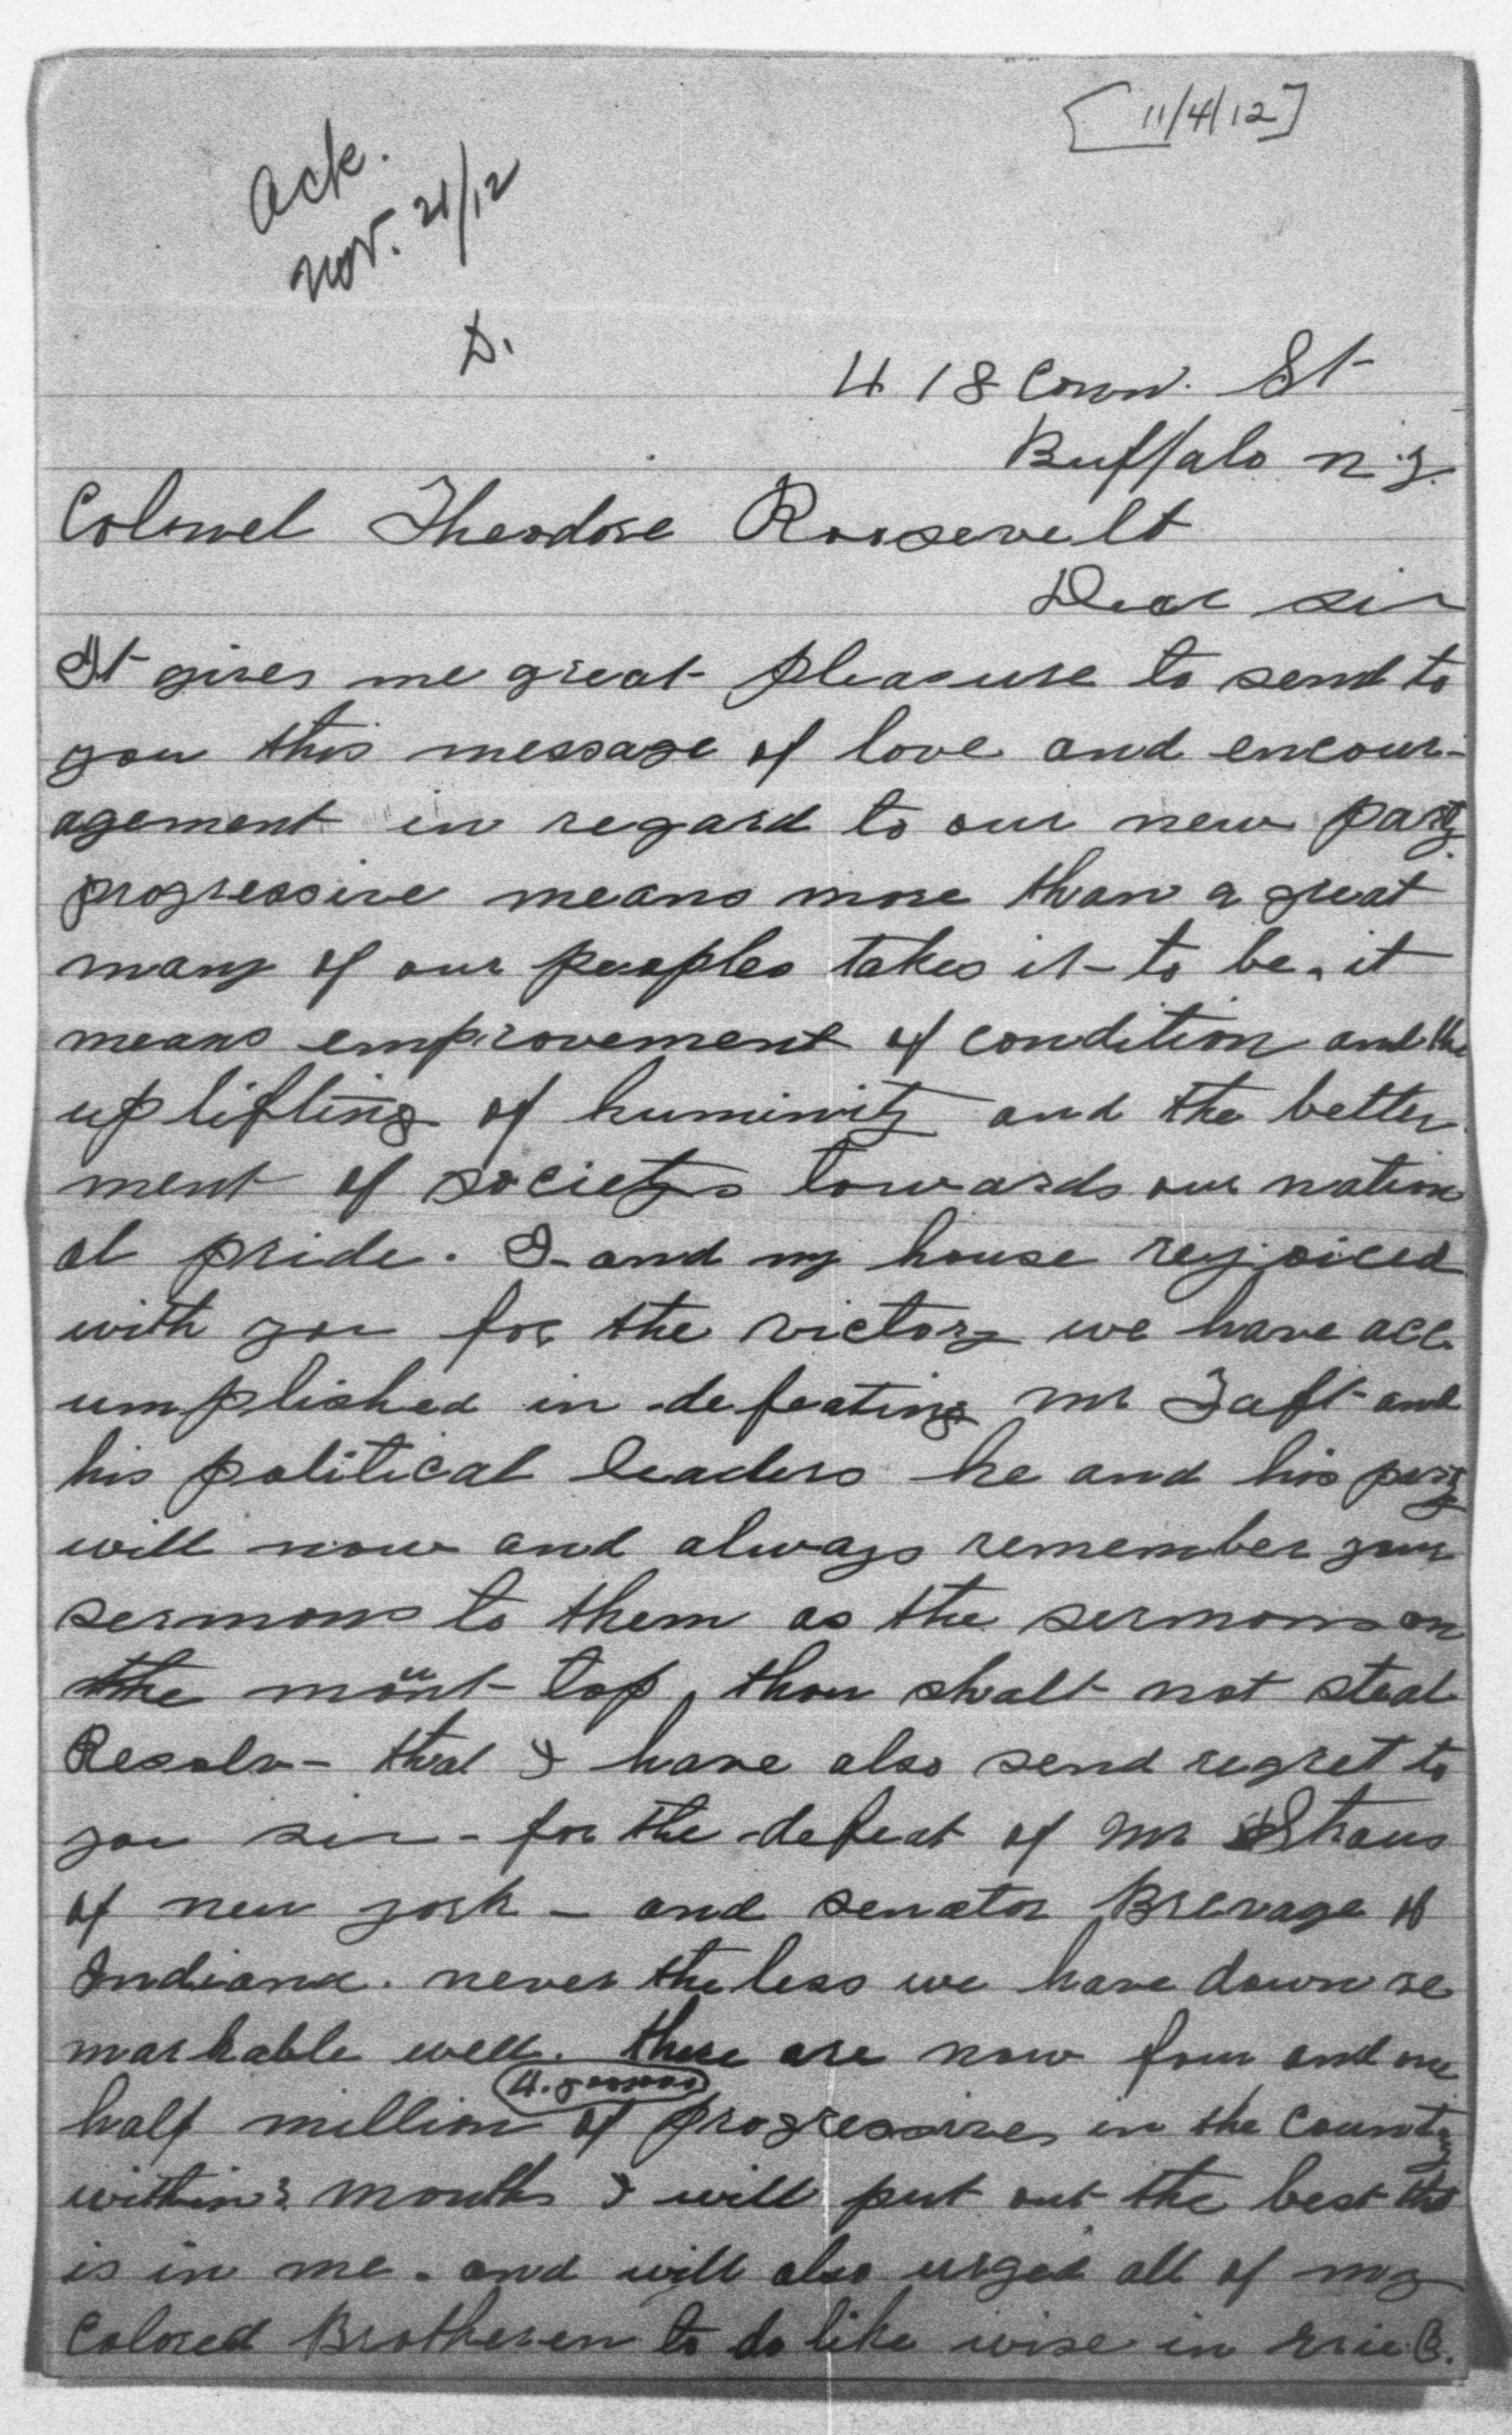 [11/4/12]
Ack.
Nov. 21/12
D.
418 Conn. St
Buffalo n.y.
Colonel Theodore Roosevelt
Dear sir
It gives me great pleasure to send to
you this message of love and encour-
agement in regard to our new party.
progressive means more than a great
many of our peoples takes it to be. it
means emprovement of condition and the
up lifting of huminity and the better
ment of societys towards our nation
al pride. I and my house rejoiced
with you for the victory we have acc
umplished in defeating Mr Taft and
his political leaders he and his party
will now and always remember your
sermons to them as the sermons on
the mount top, thou shalt not steal
Resolv- that I have also send regret to
you sir - for the defeat of Mr Straus
of new york - and senator Brevage of
Indiana. never the less we have down re
markable well. there are now four and one
half million of progressives in the country
within 3 months I will put out the best that
is in me. and will also urged all of my
Colored Brotheren to do like wise in Erie C.